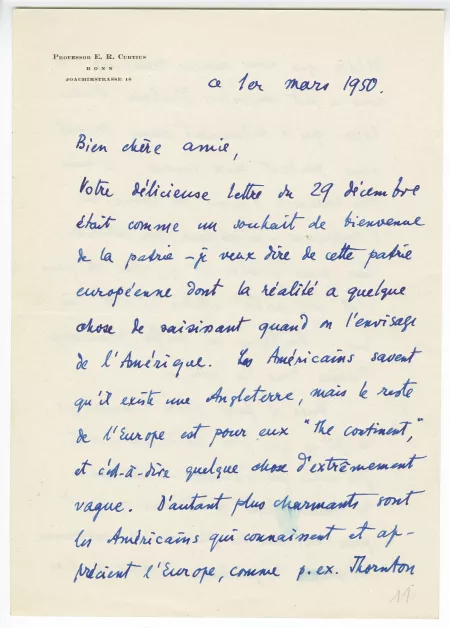 PROFESSOR E. R. CURTIUS
BONN
JOACHIMSTRASSE 18
ce 1er mars 1950.
Bien chère amie,
Votre délicieuse lettre du 29 décembre
était comme un souhait de bienvenue
de la patrie – je veux dire de cette patrie
européenne dont la réalité a quelque
chose de saisissant quand on l'envisage
de l'Amérique. Les Américains savent
qu'il existe une Angleterre, mais le reste
de l'Europe est pour eux "the continent,"
et c'est-à-dire quelque chose d'extrêmement
vague. D'autant plus charmants sont
les Américains qui connaissent et ap-
précient l'Europe, comme p. ex. Thornton